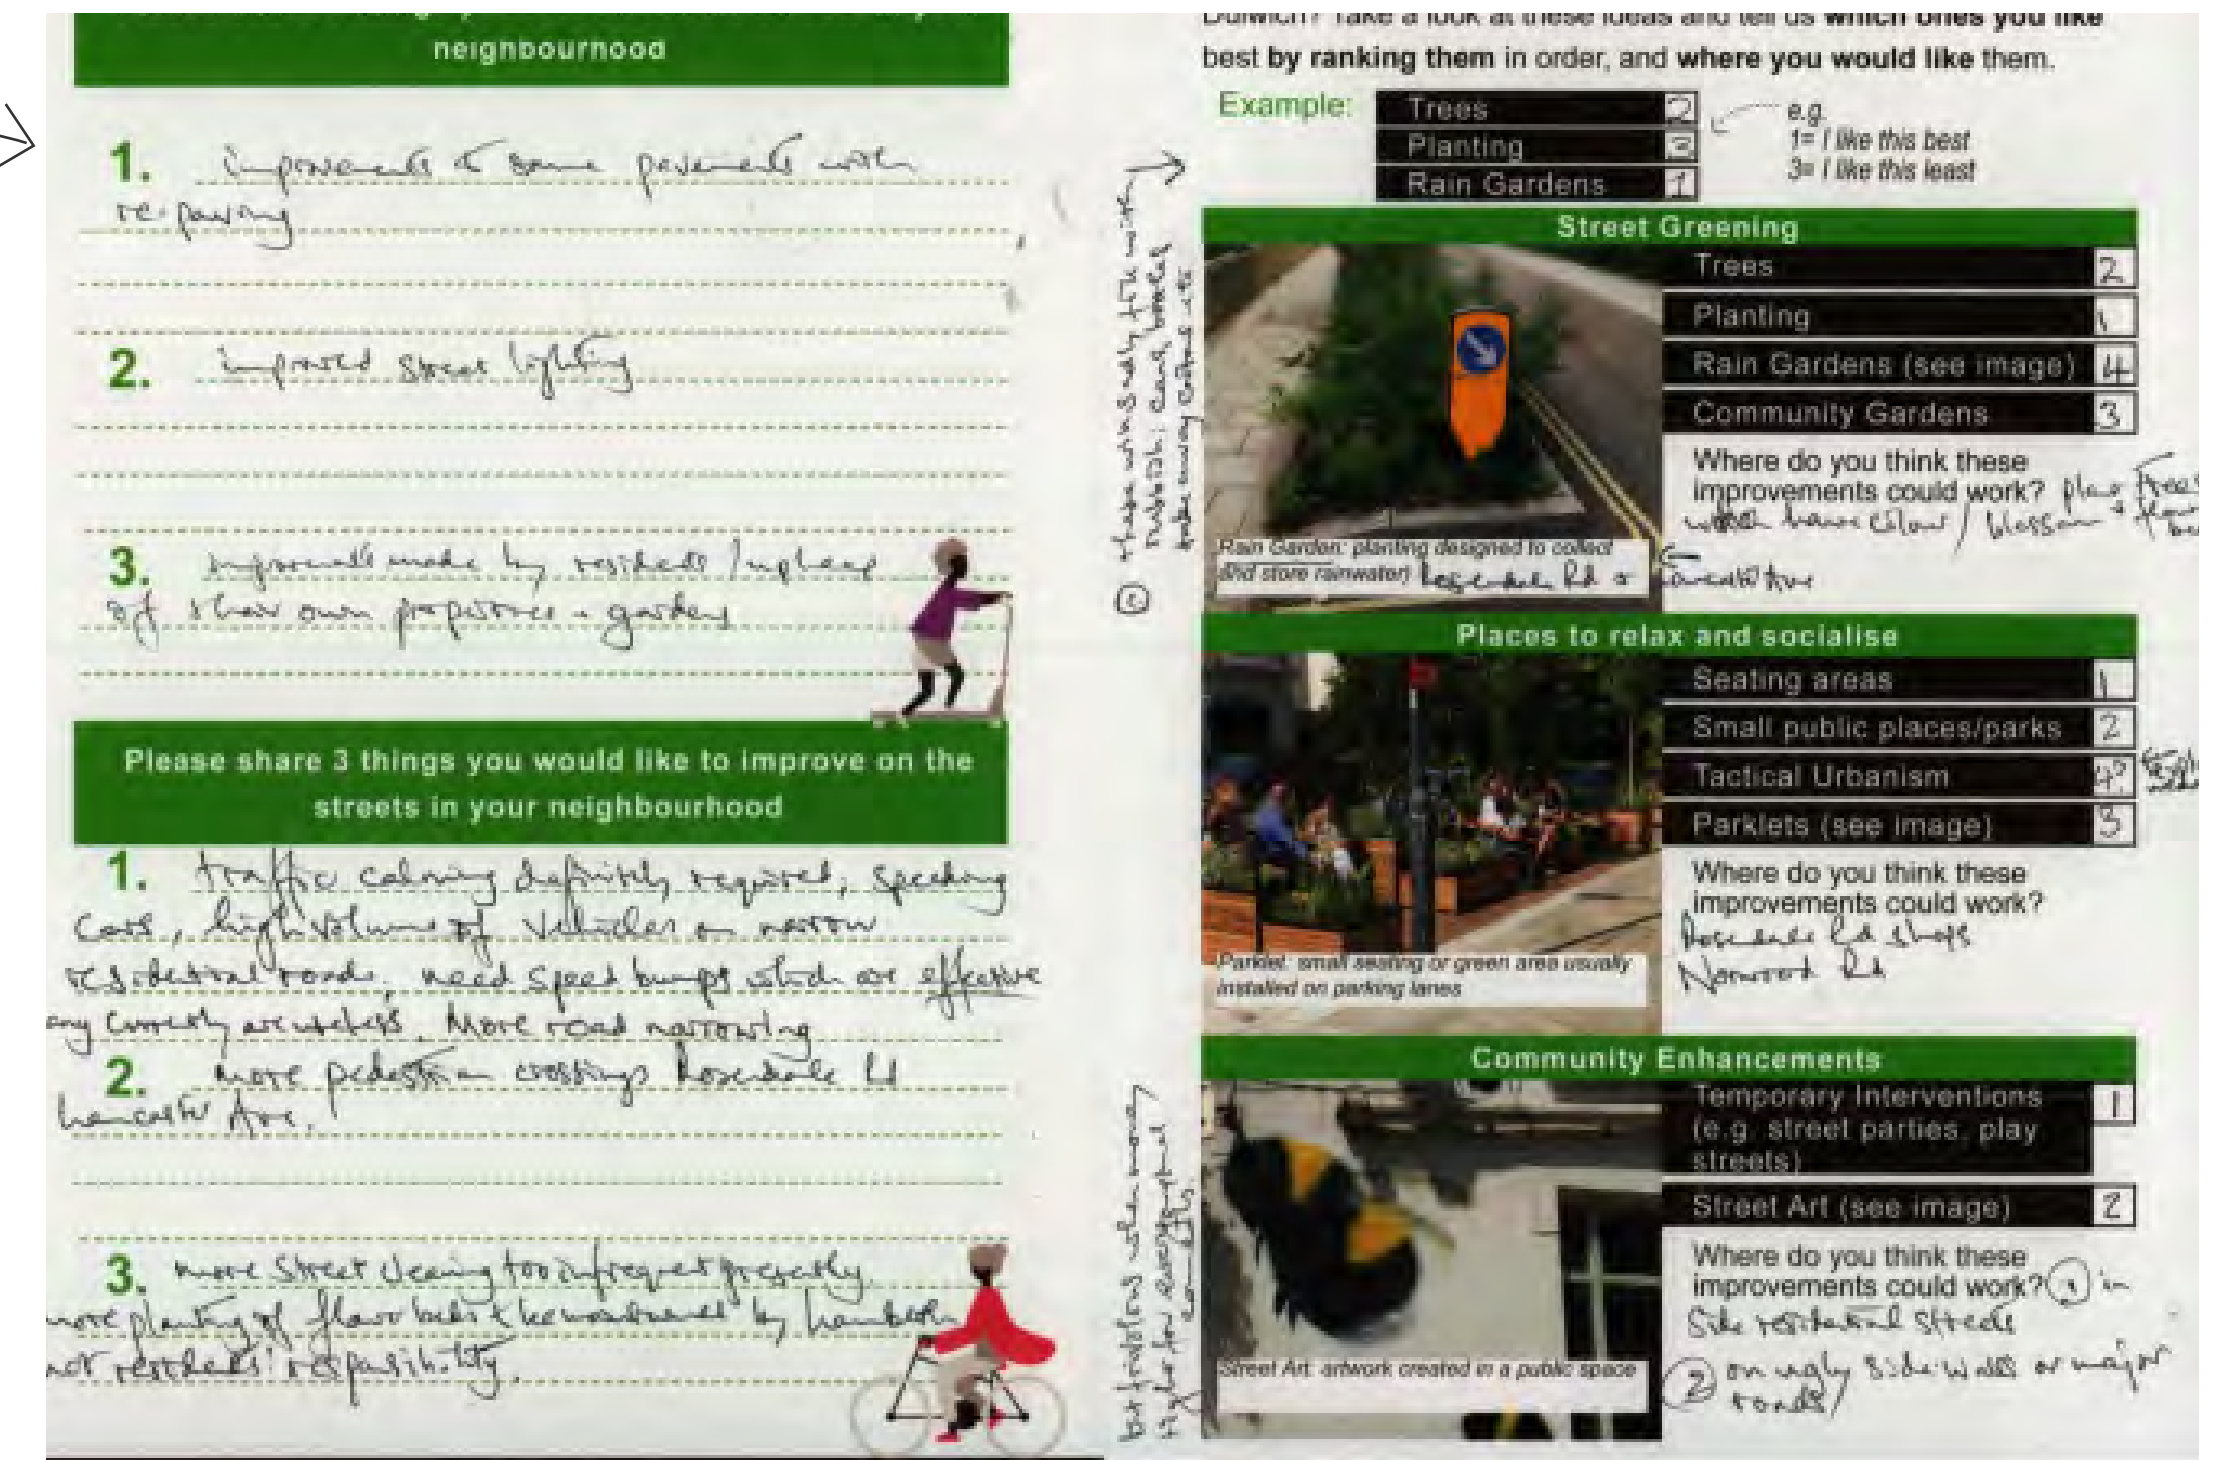 neighbourhood
1. improvements to some pavements with
re-paving
2. improved street lighting
3. improvements made by residents / upkeep
of their own properties + gardens
Please share 3 things you would like to improve on the
streets in your neighbourhood
1. traffic calming definitely required, speeding
cars, high volume of vehicles on narrow
residential roads. need speed bumps which are effective
many currently are useless. More road narrowing
2. more pedestrian crossings Rosendale Rd
Lancaster Ave.
3. more street cleaning too infrequent presently.
more planting of flower beds to be maintained by Lambeth
not residents' responsibility.
Dulwich? Take a look at these ideas and tell us which ones you like
best by ranking them in order, and where you would like them.
Example:
Trees 2
Planting 3
Rain Gardens 1
e.g.
1= I like this best
3= I like this least
these will sadly fill with
rubbish: cans, bottles
take away cartons etc
Street Greening
Trees 2
Planting 1
Rain Gardens (see image) 4
Community Gardens 3
Where do you think these
improvements could work? trees
which have colour / blossom +
Rain Garden: planting designed to collect
and store rainwater) Rosendale Rd + Lancaster Ave
Places to relax and socialise
Seating areas 1
Small public places/parks 2
Tactical Urbanism 4?
Parklets (see image) 3
Where do you think these
improvements could work?
Rosendale Rd shops
Norwood Rd
Parklet: small seating or green area usually
installed on parking lanes
Community Enhancements
Temporary Interventions
(e.g. street parties, play
streets) 1
Street Art (see image) 2
Where do you think these
improvements could work? 1 in
side residential streets
2 on ugly side walls or major
roads/
Street Art: artwork created in a public space
but frivolous when money